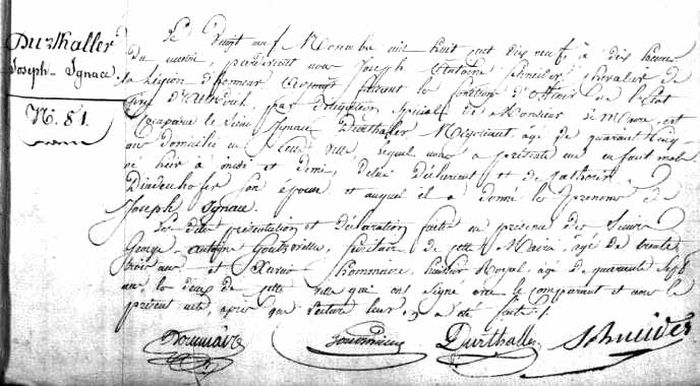 Durthaller
Joseph-Ignace
N.° 81.
Le Vingt neuf Novembre mil huit cent dix neuf, à dix heures
Du matin, pardevant nous Joseph Antoine Schneider, Chevalier de
la Légion d'honneur, adjoint faisant les fonctions d'officier de l'Etat
Civil par délégation spéciale de Monsieur le Maire, est
Comparu le Sieur Ignace Durthaller Négociant, agé de quarante
ans domicilié en cette ville, lequel nous a présenté un enfant male
né hier à midi et demi, delui Déclarant et de
son épouse et auquel il a donné les prénoms de
Joseph Ignace.
Les dites présentation et Déclaration faites en présence des Sieurs
George-Antoine secrétaire de cette Mairie, agé de trente
trois ans et Xavier huissier Royal, agé de quarante Sept
ans, les deux de cette ville qui ont signé avec le comparant et nous le
présent acte, après que lecture leur en a été faite.
Durthaller Schneider